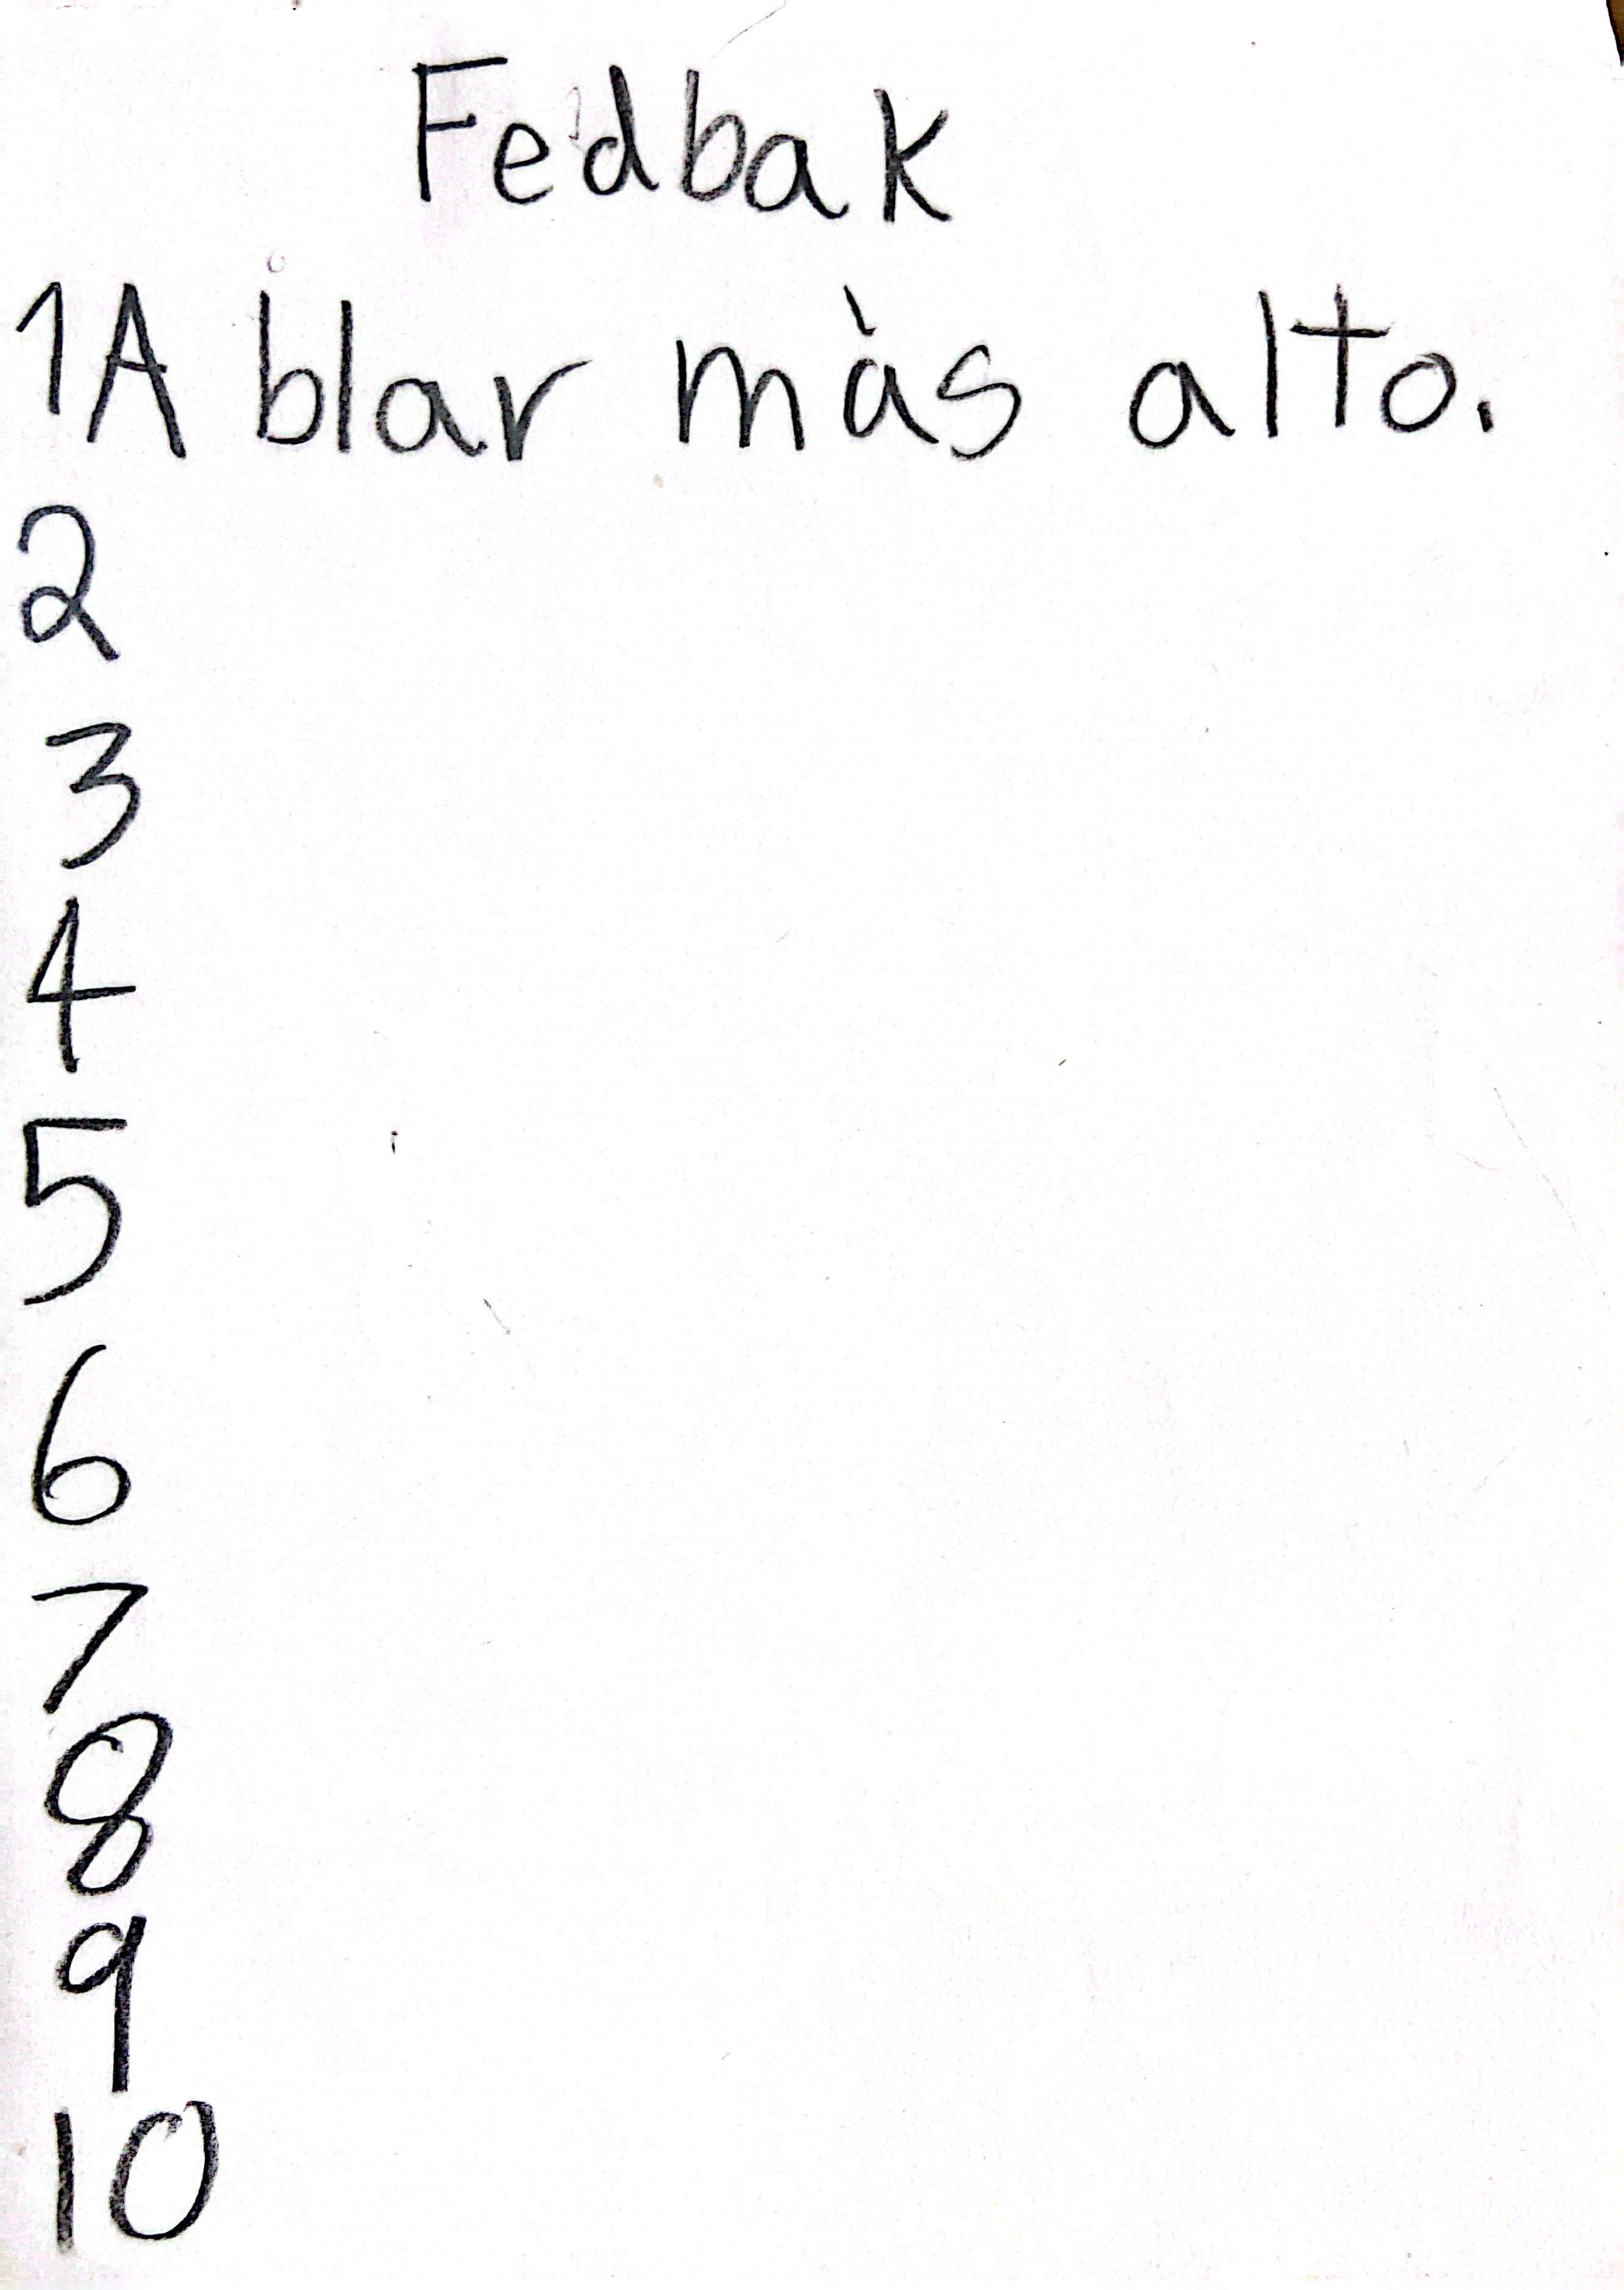 Fedbak
1A blar màs alto.
2
3
4
5
6
7
8
9
10